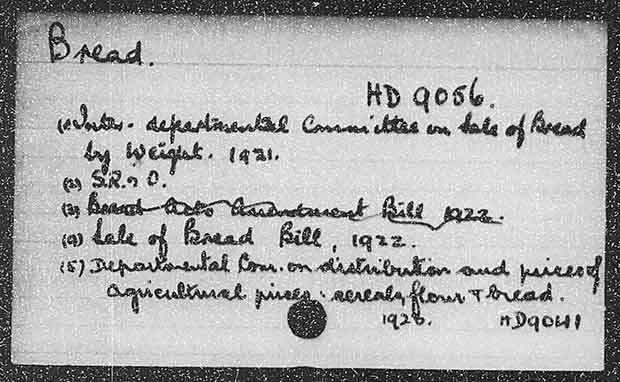 Bread.
HD 9056.
(1) Inter-departmental Committee on Sale of Bread
by Weight. 1921.
(2) S.R. & O.
(3) Bread Acts Amendment Bill 1922.
(4) Sale of Bread Bill, 1922.
(5) Departmental Com. on distribution and prices of
agricultural prices: cereals, flour & bread.
1923. HD9041